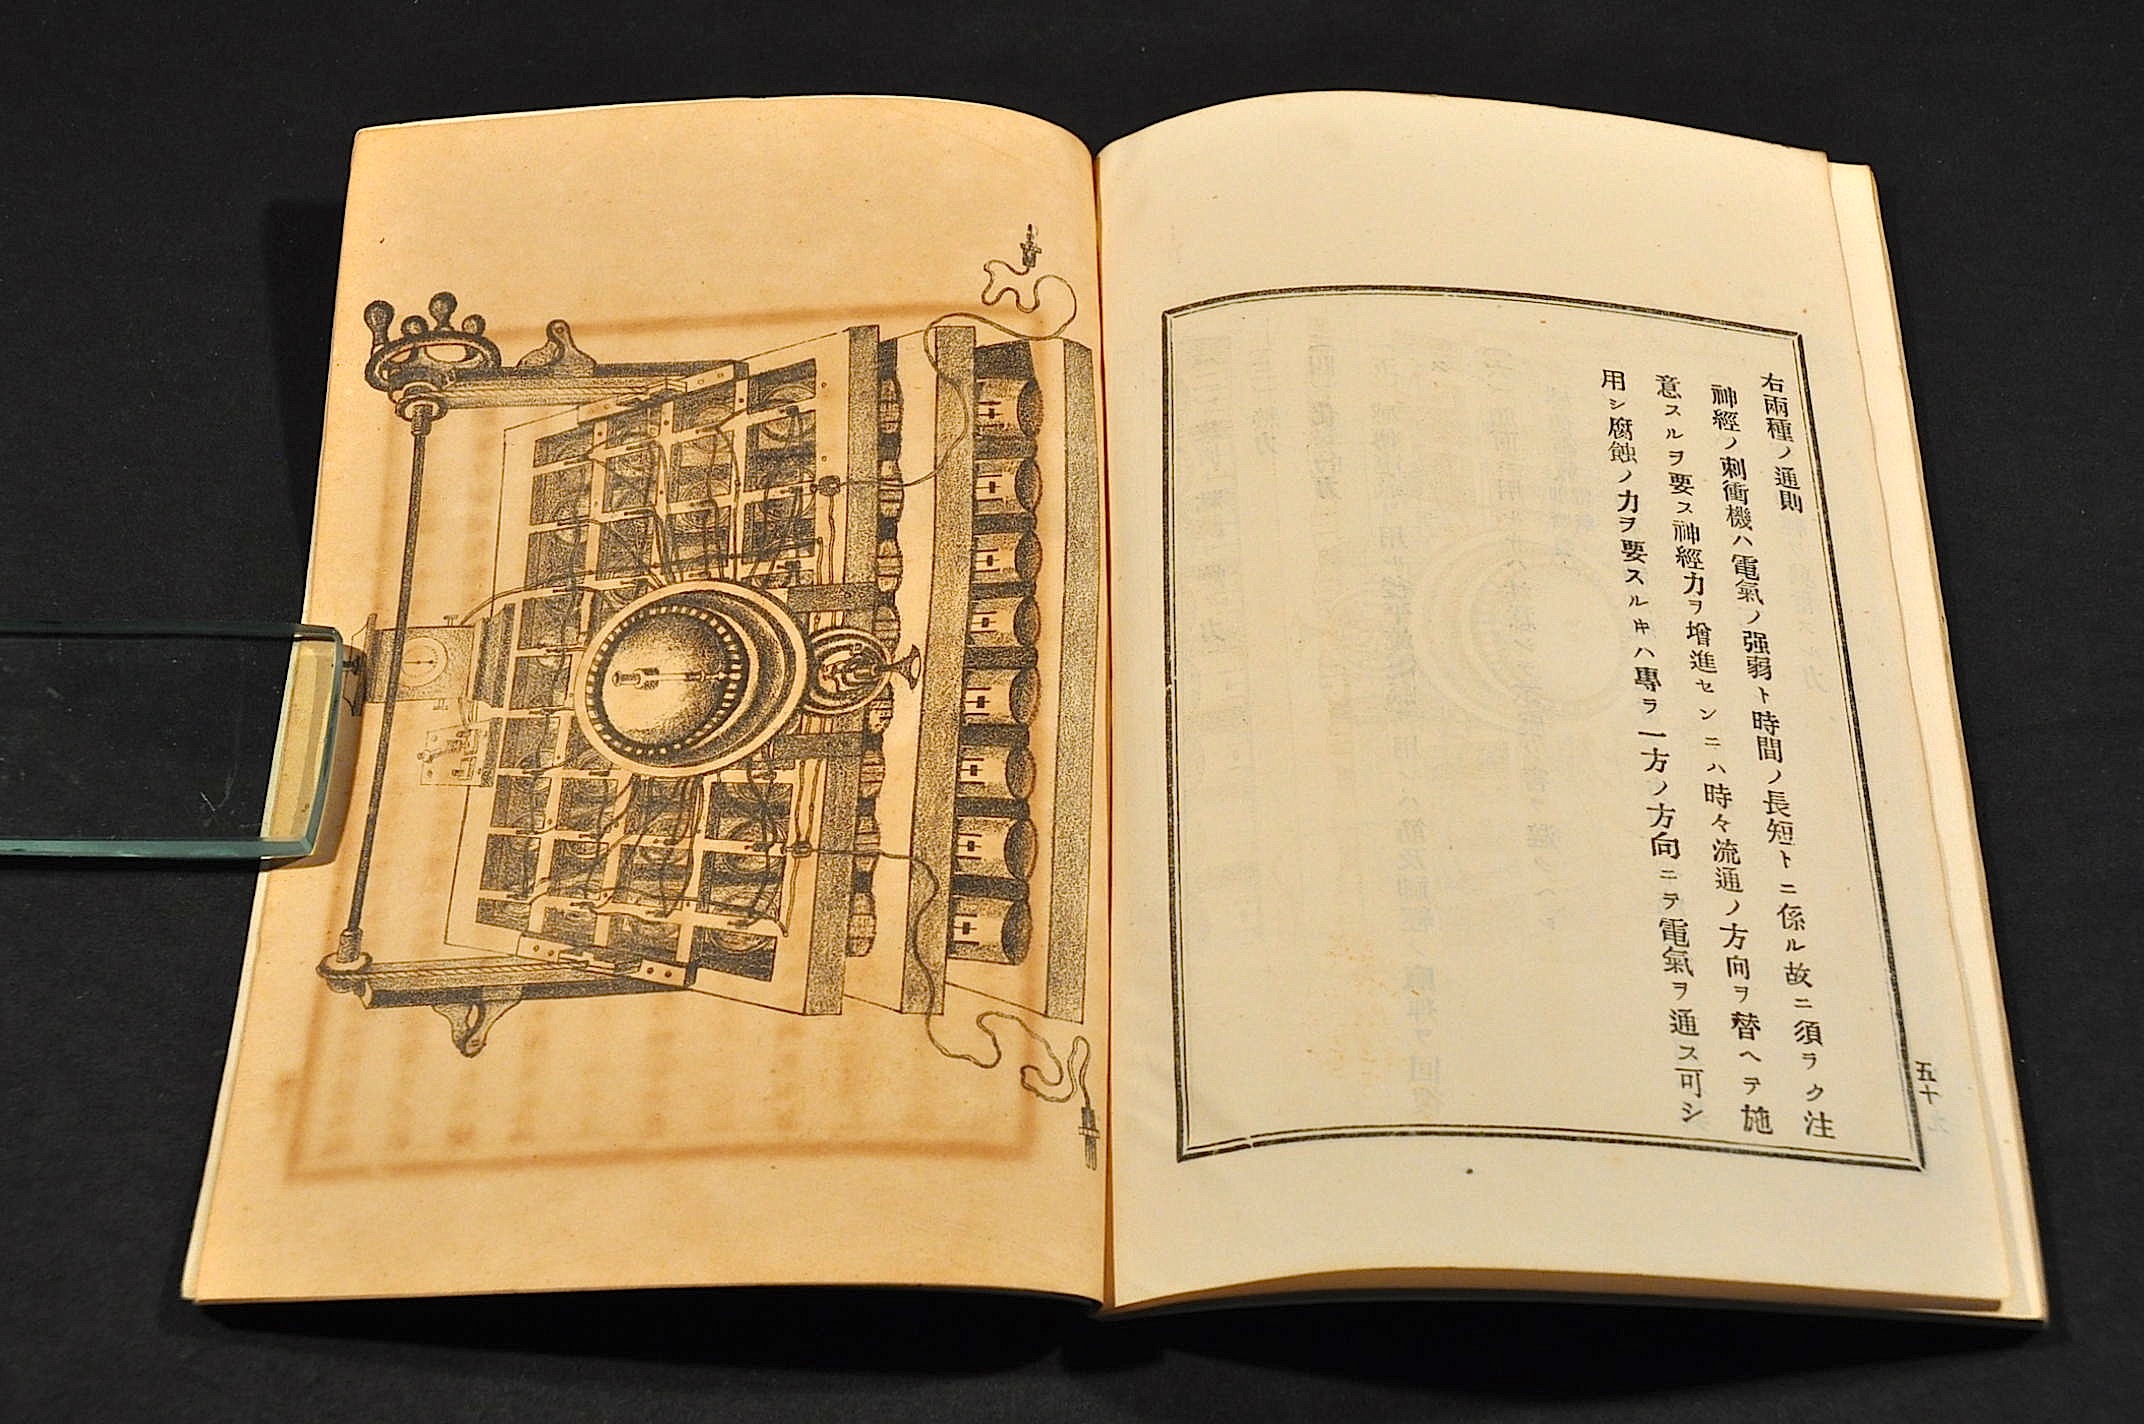 右兩種ノ通則
神經ノ刺衝機ハ電氣ノ强弱ト時間ノ長短トニ係ル故ニ須ラク注
意スルヲ要ス神經力ヲ增進センニハ時々流通ノ方向ヲ替ヘテ施
用シ腐蝕ノ力ヲ要スルキハ專ラ一方ノ方向ニテ電氣ヲ通ス可シ
五十